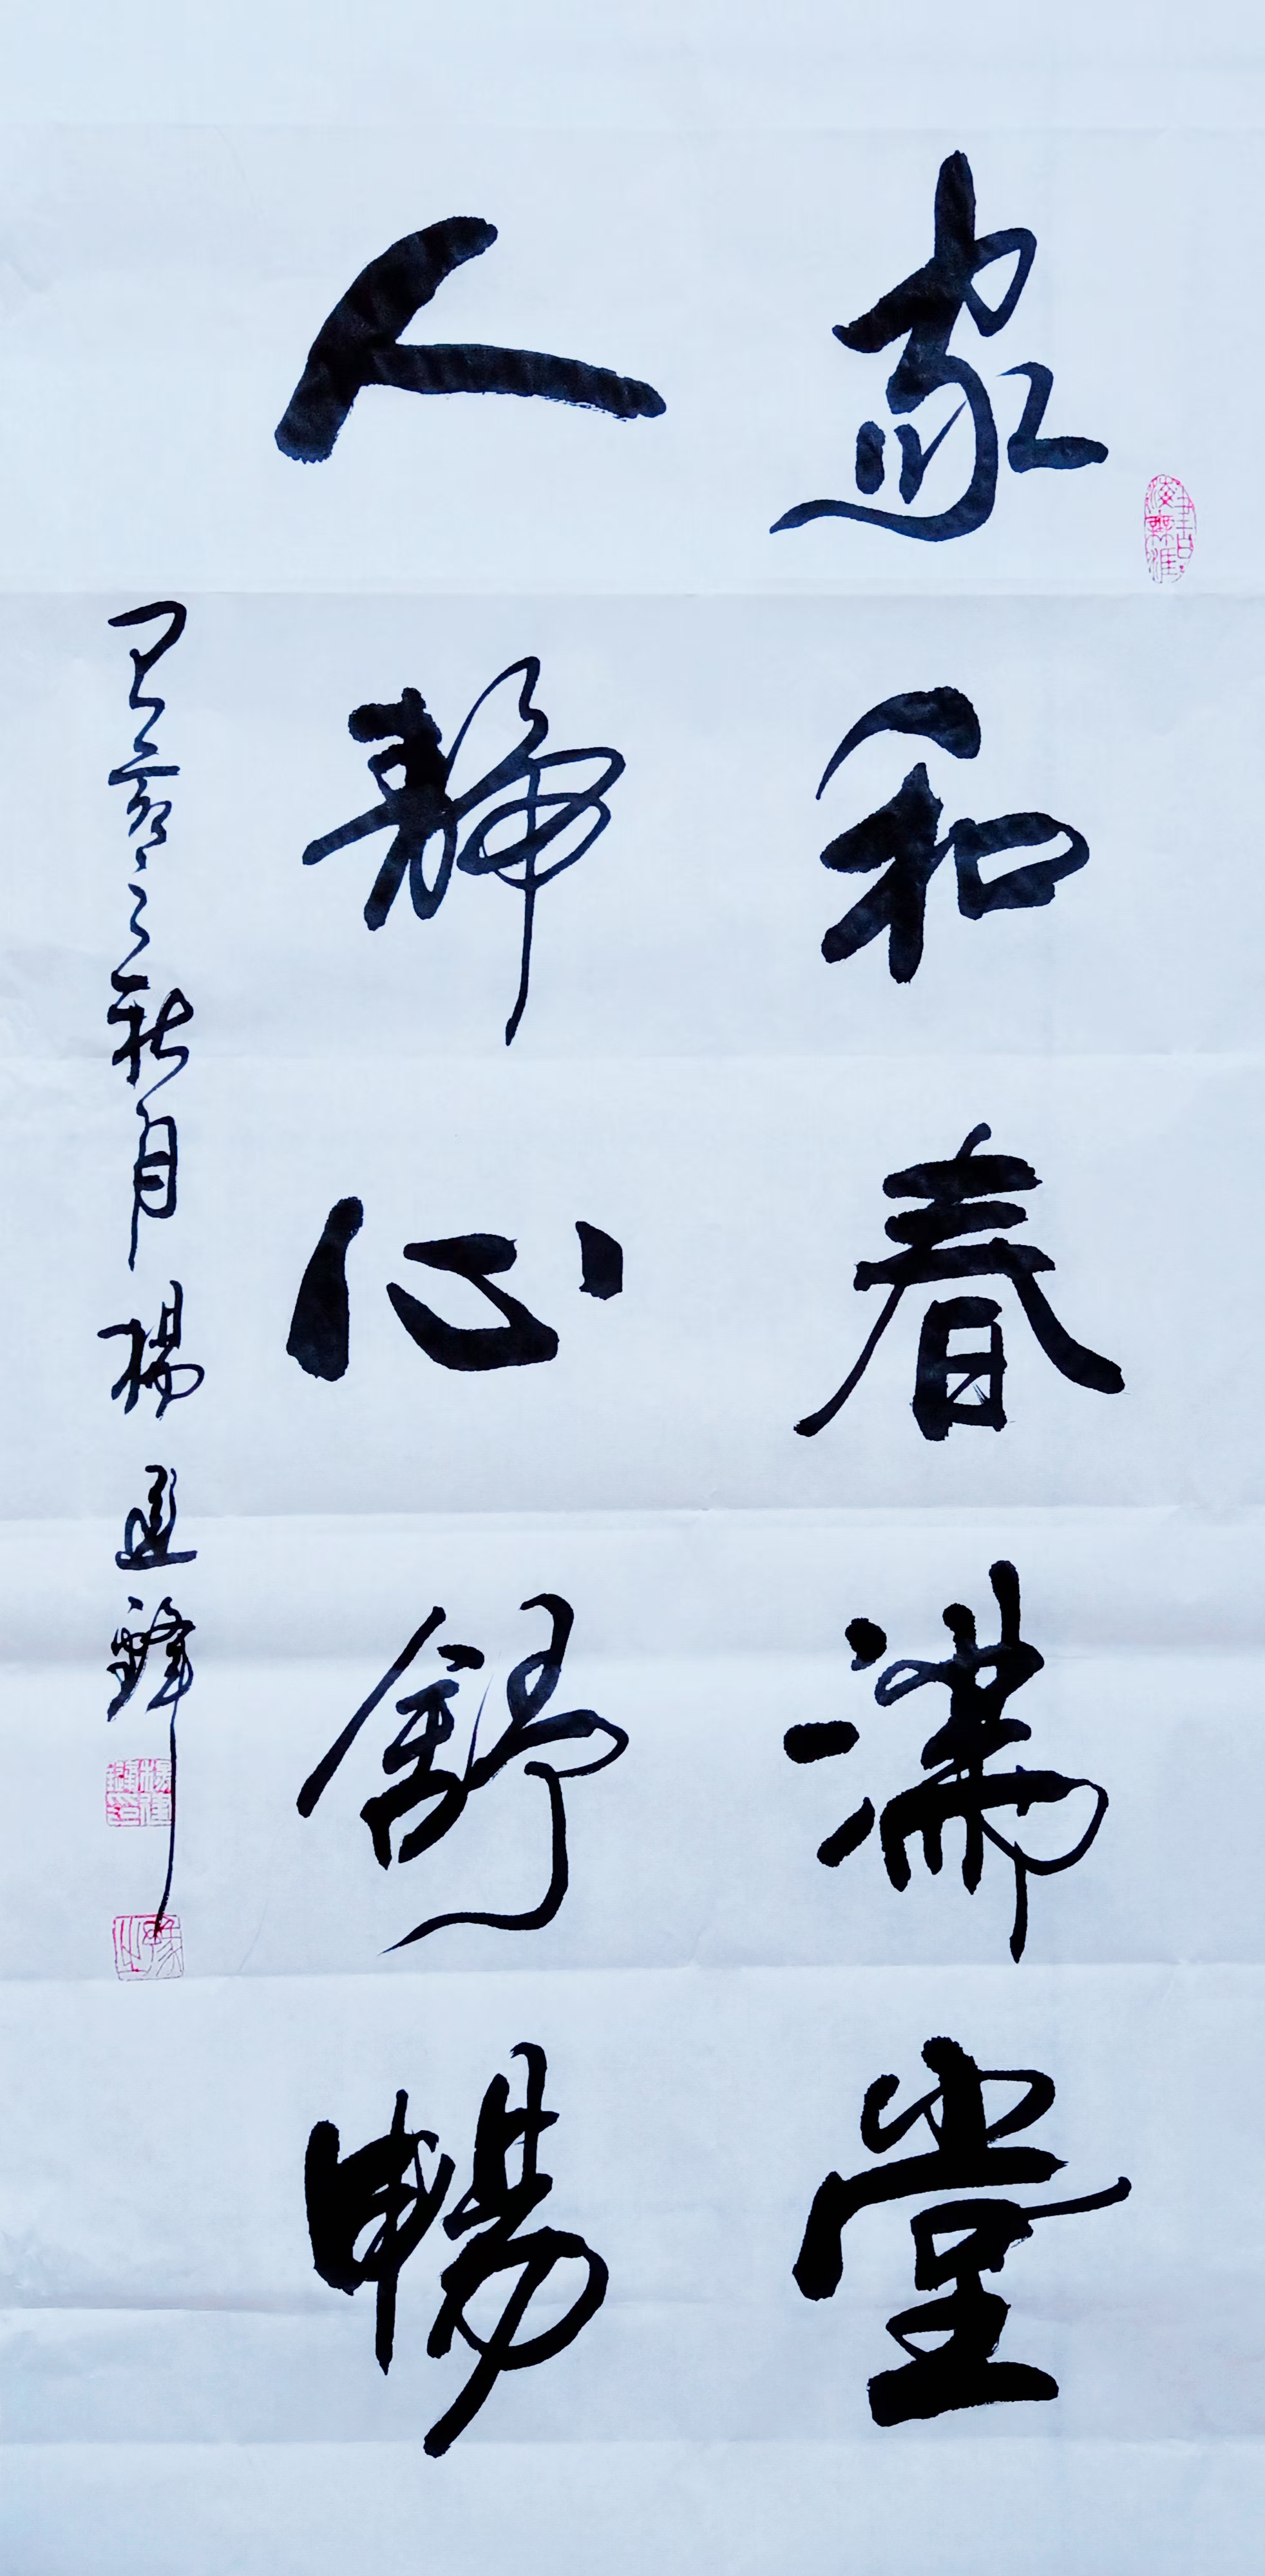 家和春滿堂
人靜心舒暢
己亥之秋月楊運鋒